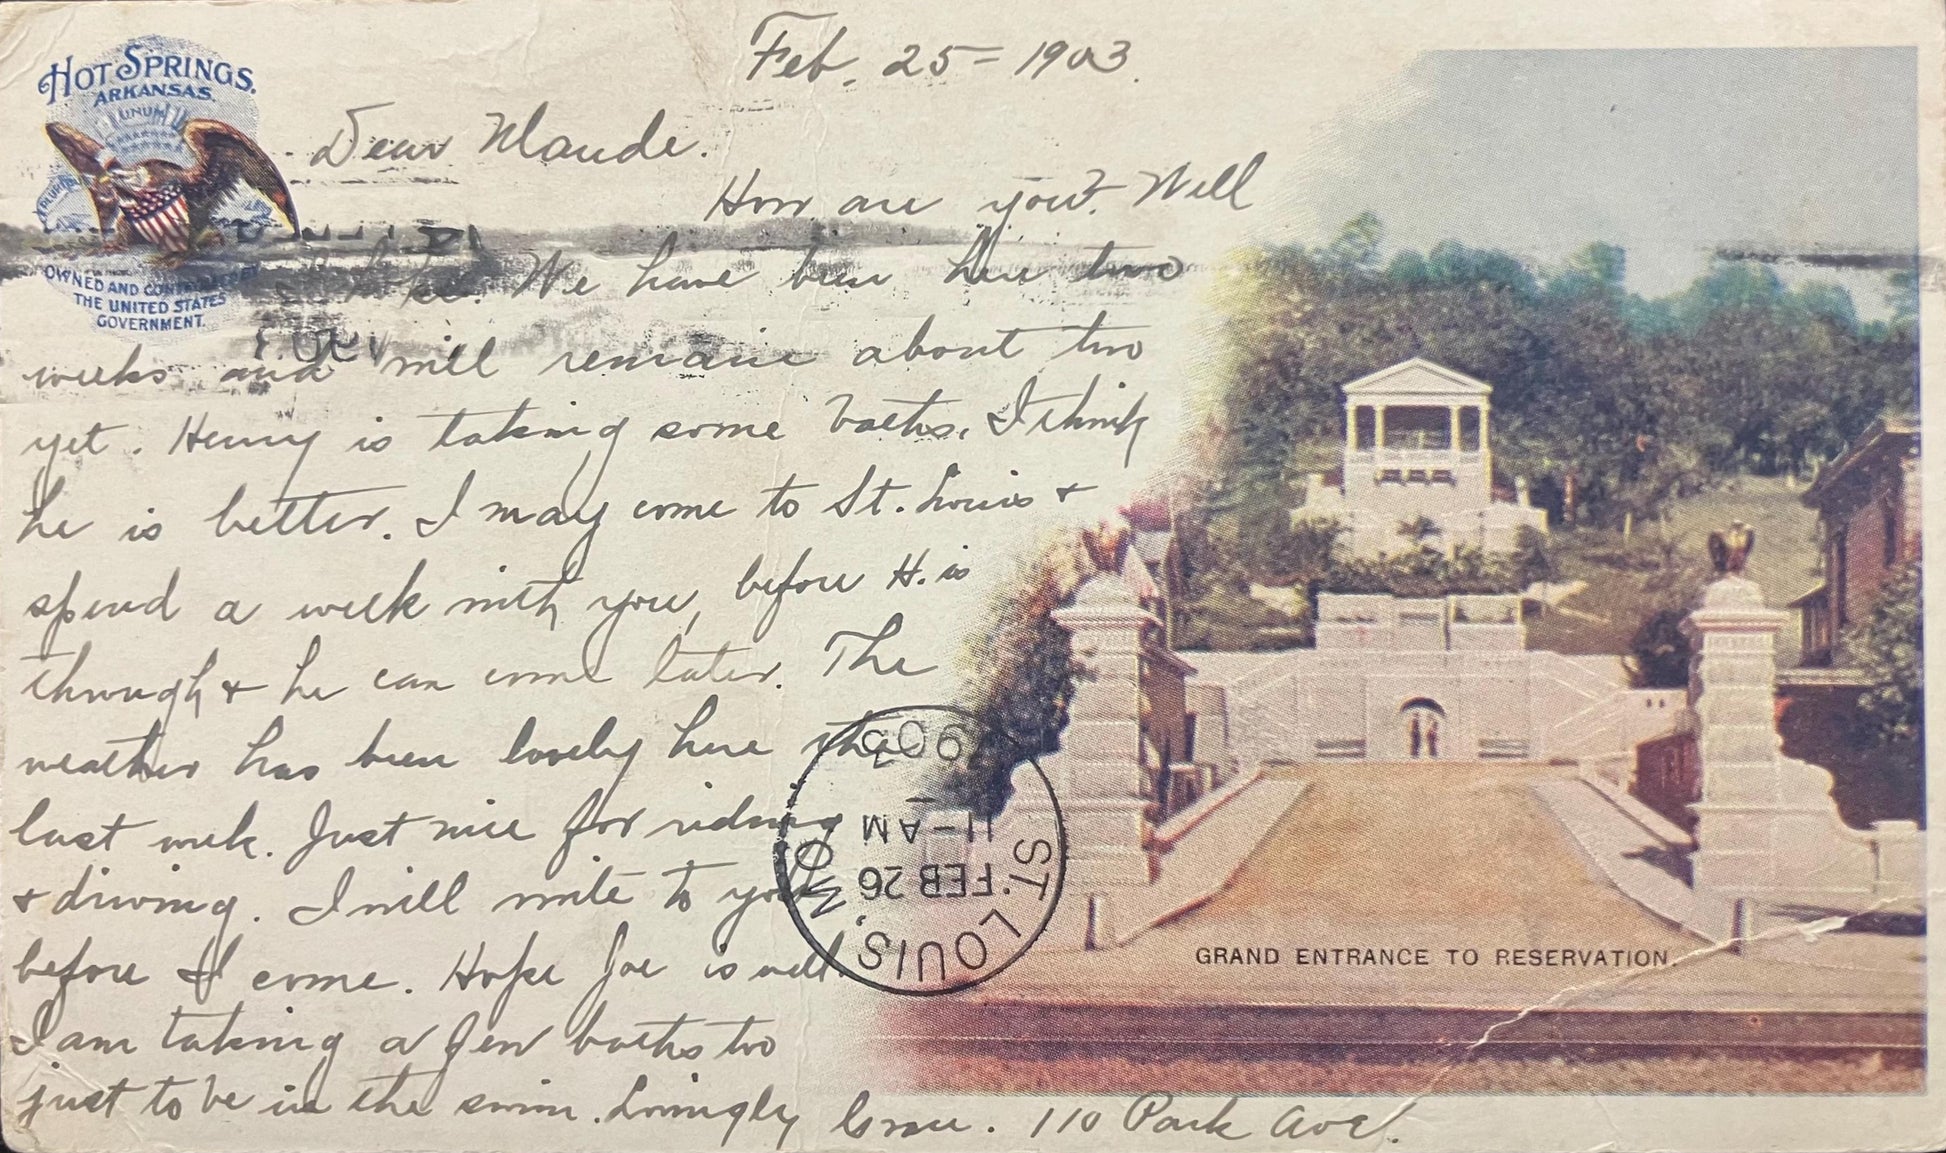 HOT SPRINGS.
ARKANSAS.
UNUM
E PLURIBUS
OWNED AND CONTROLLED BY
THE UNITED STATES
GOVERNMENT.
Feb. 25 = 1903.
Dear Maude.
How are you? Well
I hope. We have been here two
weeks and will remain about two
yet. Henry is taking some baths. I think
he is better. I may come to St. Louis +
spend a week with you, before H. is
through + he can come later. The
weather has been lovely here the
last week. Just nice for riding
+ driving. I will write to you
before I come. Hope Joe is well.
I am taking a few baths too
just to be in the swim. Lovingly
110 Park Ave.
GRAND ENTRANCE TO RESERVATION.
ST. LOUIS, MO.
FEB 26
11-AM
1903